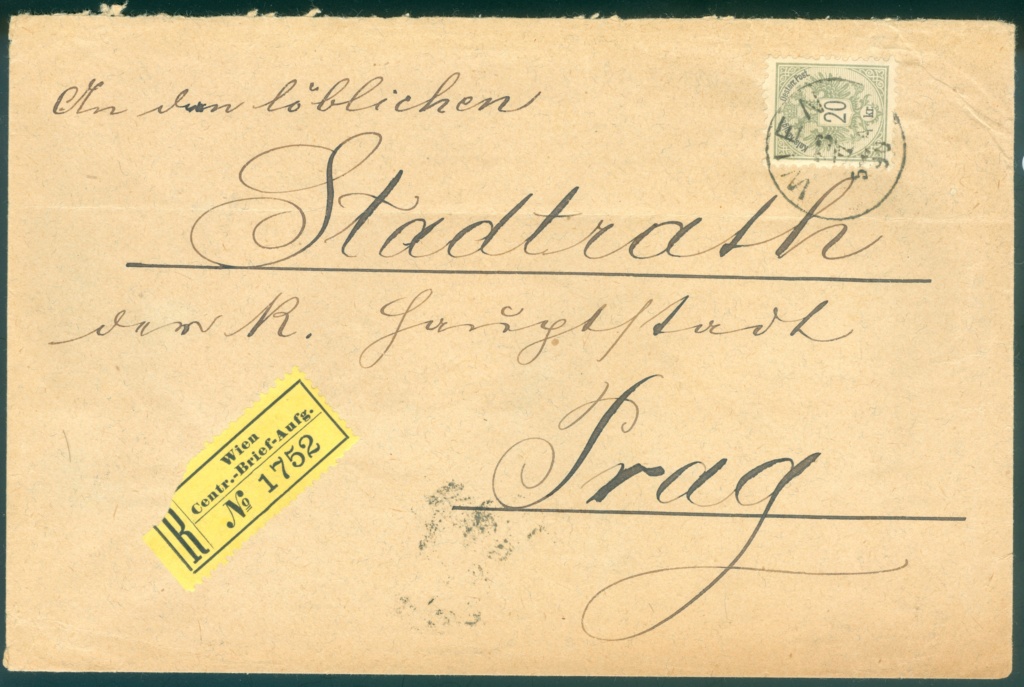 An den löblichen
Stadtrath
der K. Hauptstadt
Prag
20
kr.
WIEN
90
Wien
Centr.-Brief-Aufg.
R
№ 1752